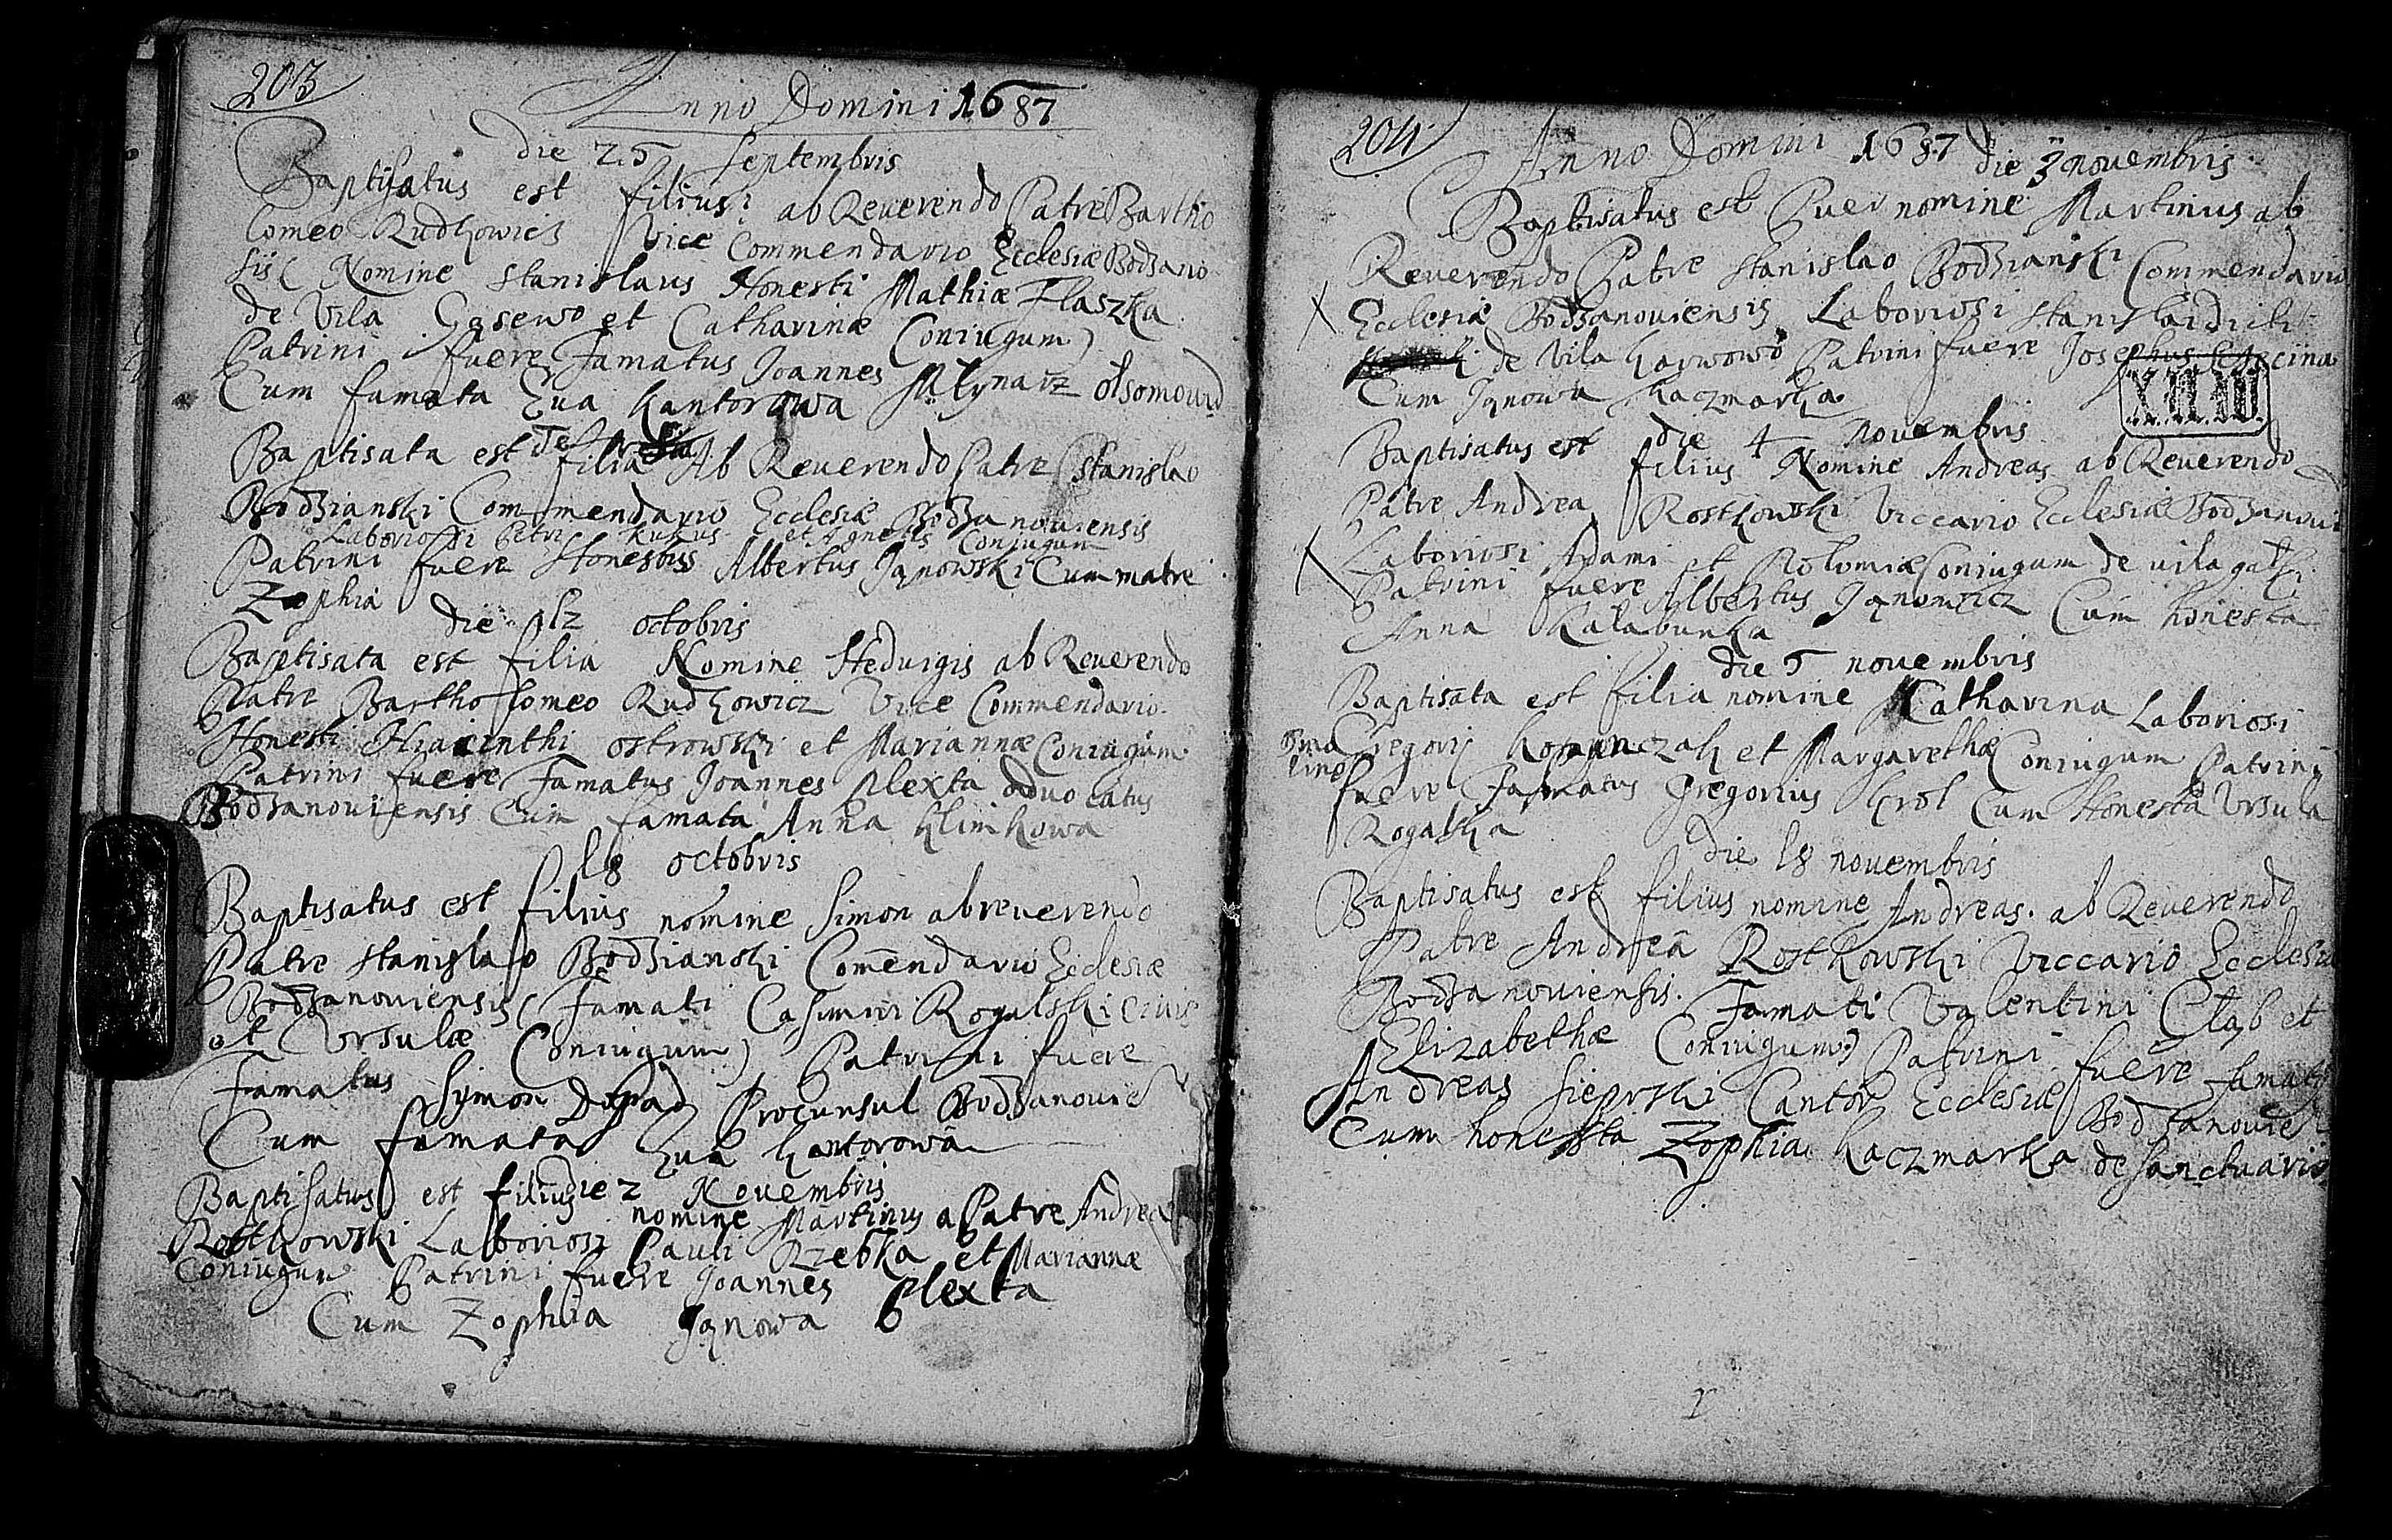 203
Anno Domini 1687
die 25 Septembris
Baptisatus est filius ab Reuerendo Patre Bartho
lomeo Rudkowicz Vice Commendario Ecclesiæ Bodzano
sis Nomine Stanislaus Honesti Mathiæ Flaszka
de Vila Gąsewo et Catharinæ Coniugum)
Patrini fuere Famatus Joannes Młynarz
Cum famata Eua Kantorowa
Baptisata est filia Ab Reuerendo Patre Stanislao
Bodzianski Commendario Ecclesiæ Bodzanouiensis
Laboriosi Petri Kukus et Agnetis Coniugum
Patrini fuere Honestus Albertus Jąnowski Cum matre
Zophia
die 12 octobris
Baptisata est filia Nomine Heduigis ab Reuerendo
Patre Bartholomeo Rudkowicz Vice Commendario
Honesti Hiacinthi ostrowski et Mariannæ Coniugum
Patrini fuere Famatus Joannes Plexta aduocatus
Bodzanouiensis Cum famata Anna Klimkowa
18 octobris
Baptisatus est filius nomine Simon ab reuerendo
Patre Stanislao Bodzianski Comendario Ecclesiæ
Bodzanouiensis (Famati Casimiri Rogalski Ciuis
et Ursulæ Coniugum) Patrini fuere
Famatus Symon Procunsul Bodzanouie
Cum famata Eua Kantorowa
die 2 Nouembris
Baptisatus est filius nomine Martinus a Patre Andrea
Rostkowski Laboriosi Pauli Rzebka et Mariannæ
Coniugum Patrini fuere Joannes Plexta
Cum Zophia Jąnowa
204
Anno Domini 1687 die 3 nouembris
Baptisatus est Puer nomine Martinus ab
Reuerendo Patre Stanislao Bodzianski Commendario
Ecclesiæ Bodzanouiensis Laboriosi Stanislai dicti
de Vila Karwowo Patrini fuere Josephus
Cum Jąnowa Kaczmarka
die 4 Nouembris
Baptisatus est filius Nomine Andreas ab Reuerendo
Patre Andrea Rostkowski Viccario Ecclesiæ Bodzanoui
Laboriosi Adami et Coniugum de uila
Patrini fuere Albertus Jąnowicz Cum honesta
Anna Kałabunka
die 5 nouembris
Baptisata est filia nomine Katharina Laboriosi
Gregorij et Margarethæ Coniugum Patrini
fuere Famatus Gregorius Krol Cum Honesta Vrsula
Rogalka
die 18 nouembris
Baptisatus est filius nomine Andreas. ab Reuerendo
Patre Andreā Rostkowski Viccario Ecclesiæ
Bodzanouiensis. Famati Valentini et
Elizabethæ Coniugum) Patrini fuere Famat
Andreas Sieprski Cantor Ecclesiæ Bodzanouie
Cum honesta Zophia Kaczmarka de Sanctuario